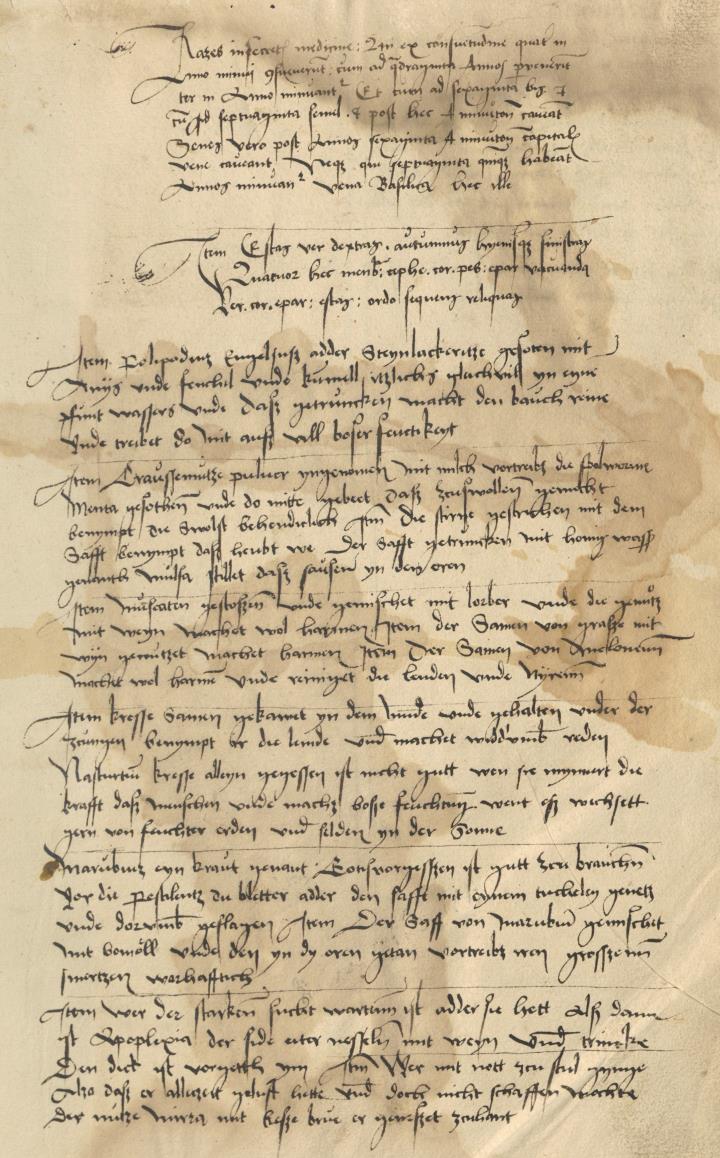 Razes in secretis medicine: Qui ex consuetudine quat in
Anno minui consueverunt: cum ad quadraginta Annos pervenerit
ter in Anno minuantur Et cum ad sexaginta bis et
cum ad septuaginta semel. et post hec A minutione caveat
Senes vero post Annos sexaginta A minutione capitalis
vene caveant Neque qui septuaginta quinque habeat
Annos minuantur vena Basilica hec ille
Item Estas ver dextras, autumnus hyemsque sinistras
Quatuor hec membra: cephe. cor. pes: epar vacuanda
Ver. cor. epar: estas: ordo sequens reliquas
Item Polipodium Engelsusz adder Steynlackeritze gesoten mit
Anys unde fenchil unde kumell itzlichs gleichvill yn eyne
pfunt wassers unde dasz getruncken macht den bauch reine
unde treibet do mit ausz vill boser feuctikeyt
Item Craussemuntze pulver yngenomen mit milch vortreibt die spolworme
Menta gesothen unde do mitte gebeet dasz zcuswollen gemecht
benympt die Swolst behendiclich Item die stirne gestrichen mit dem
Safft benympt dasz heubt we Der Safft getruncken mit honig wasser
genanth mulsa stillet dasz sausen yn den oren
Item muscaten gestoszen unde gemischet mit lorber unde die genutz
mit weyn machet wol harmen Item der Samen von grasze mit
wyn genutzet machet harmen Item Der Samen von
machet wol harmen unde reiniget die lenden unde Nyren
Item kresse Samen gekawet yn dem munde unde gehalten under der
zcungen benympt er die lemde und machet widdirumb reden
Nasturtium kresse alleyn gegessen ist nicht gutt wen sie mynnert die
krafft dasz menschen unde machs bosze feuchtung went esz wechsett
gern von feuchter erden und selden yn der Sonne
Marubium eyn kraut genant Gotisvorgessen ist gutt zcu brauchen
vor die Pestilentz du bletter adder den safft mit eynem tuchelen genetz
unde dorumb geslagen Item Der Saff von marubium gemischet
mit bomoll unde den yn dy oren getan vortreibt
smertzen worhafftich
Item wer der starken sucht wartem ist adder sie hett Alsz dann
ist Apoplexia der side eiter nesseln mit weyn und trincke
Den dick ist vorgetth ym Item Wer mit nott zcu stul gynge
Alzo dasz er allezeit gelust hette und doch nicht schaffen mochte
der nutze mirra mit kesze brue er geneszet zcuhant